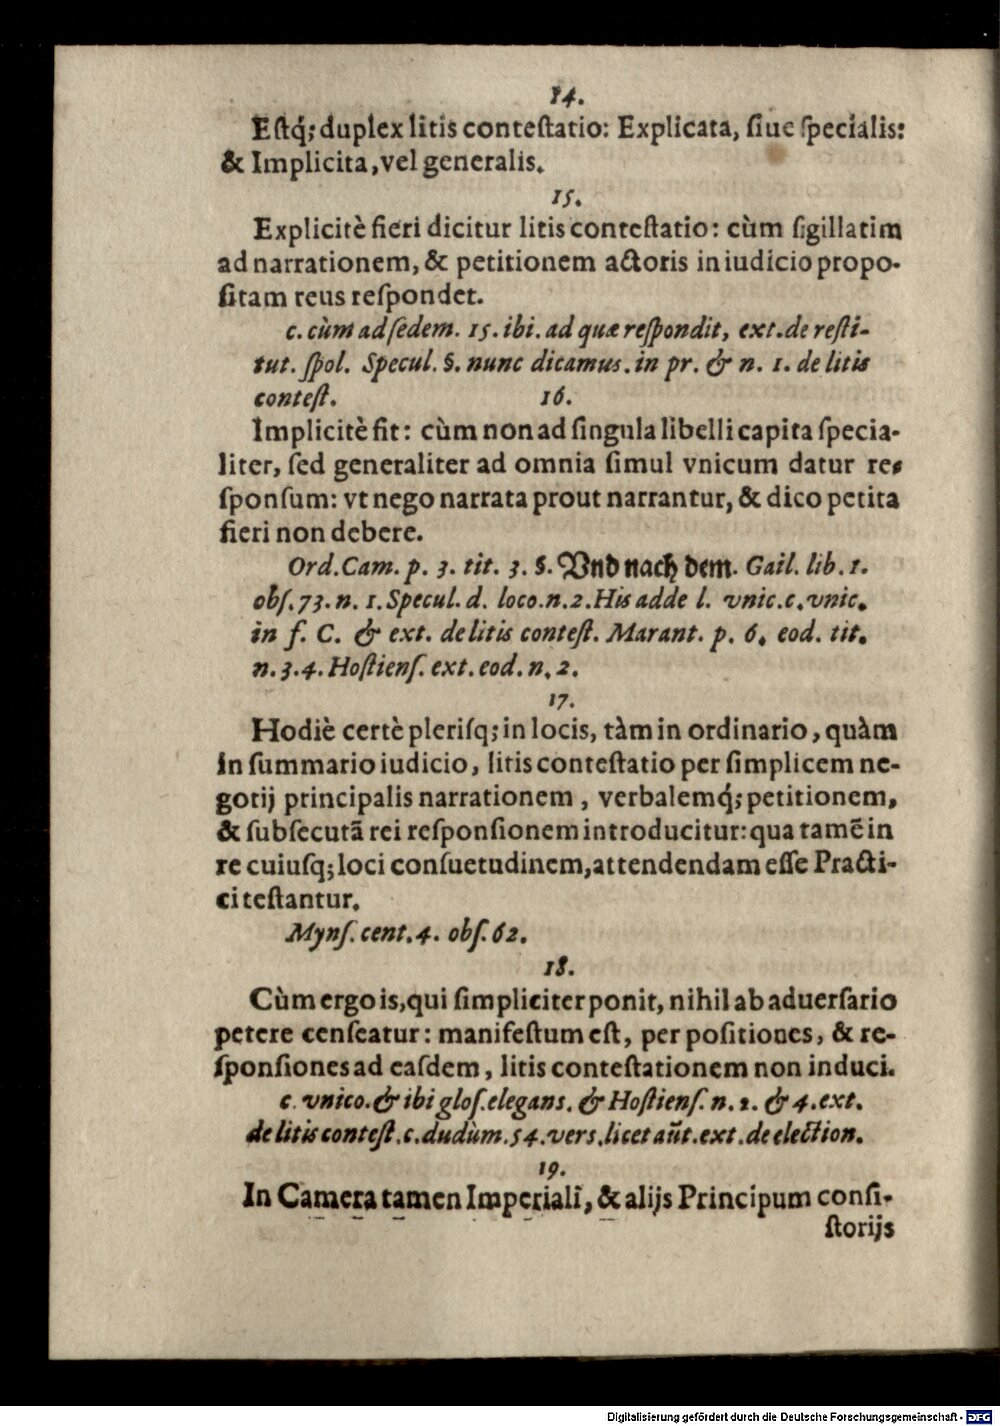 14.
Estq́; duplex litis contestatio: Explicata, siue specialis:
& Implicita, vel generalis.
15.
Explicitè fieri dicitur litis contestatio: cùm sigillatim
ad narrationem, & petitionem actoris in iudicio propo-
sitam reus respondet.
c. cùm ad sedem. 15. ibi. ad quæ respondit, ext. de resti-
tut. spol. Specul. §. nunc dicamus. in pr. & n. 1. de litis
contest.
16.
Implicitè fit: cùm non ad singula libelli capita specia-
liter, sed generaliter ad omnia simul vnicum datur re-
sponsum: vt nego narrata prout narrantur, & dico petita
fieri non debere.
Ord. Cam. p. 3. tit. 3. §. Vnd nach dem. Gail. lib. 1.
obs. 73. n. 1. Specul. d. loco. n. 2. His adde l. vnic. c. vnic.
in f. C. & ext. de litis contest. Marant. p. 6. eod. tit.
n. 3. 4. Hostiens. ext. eod. n. 2.
17.
Hodiè certè plerisq; in locis, tàm in ordinario, quàm
in summario iudicio, litis contestatio per simplicem ne-
gotij principalis narrationem, verbalemq́; petitionem,
& subsecutã rei responsionem introducitur: qua tamẽ in
re cuiusq; loci consuetudinem, attendendam esse Practi-
ci testantur.
Myns. cent. 4. obs. 62.
18.
Cùm ergo is, qui simpliciter ponit, nihil ab aduersario
petere censeatur: manifestum est, per positiones, & re-
sponsiones ad easdem, litis contestationem non induci.
c. vnico. & ibi glos. elegans. & Hostiens. n. 2. & 4. ext.
de litis contest. c. dudùm. 54. vers. licet aũt. ext. de election.
19.
In Camera tamen Imperiali, & alijs Principum consi-
storijs
Digitalisierung gefördert durch die Deutsche Forschungsgemeinschaft - DFG